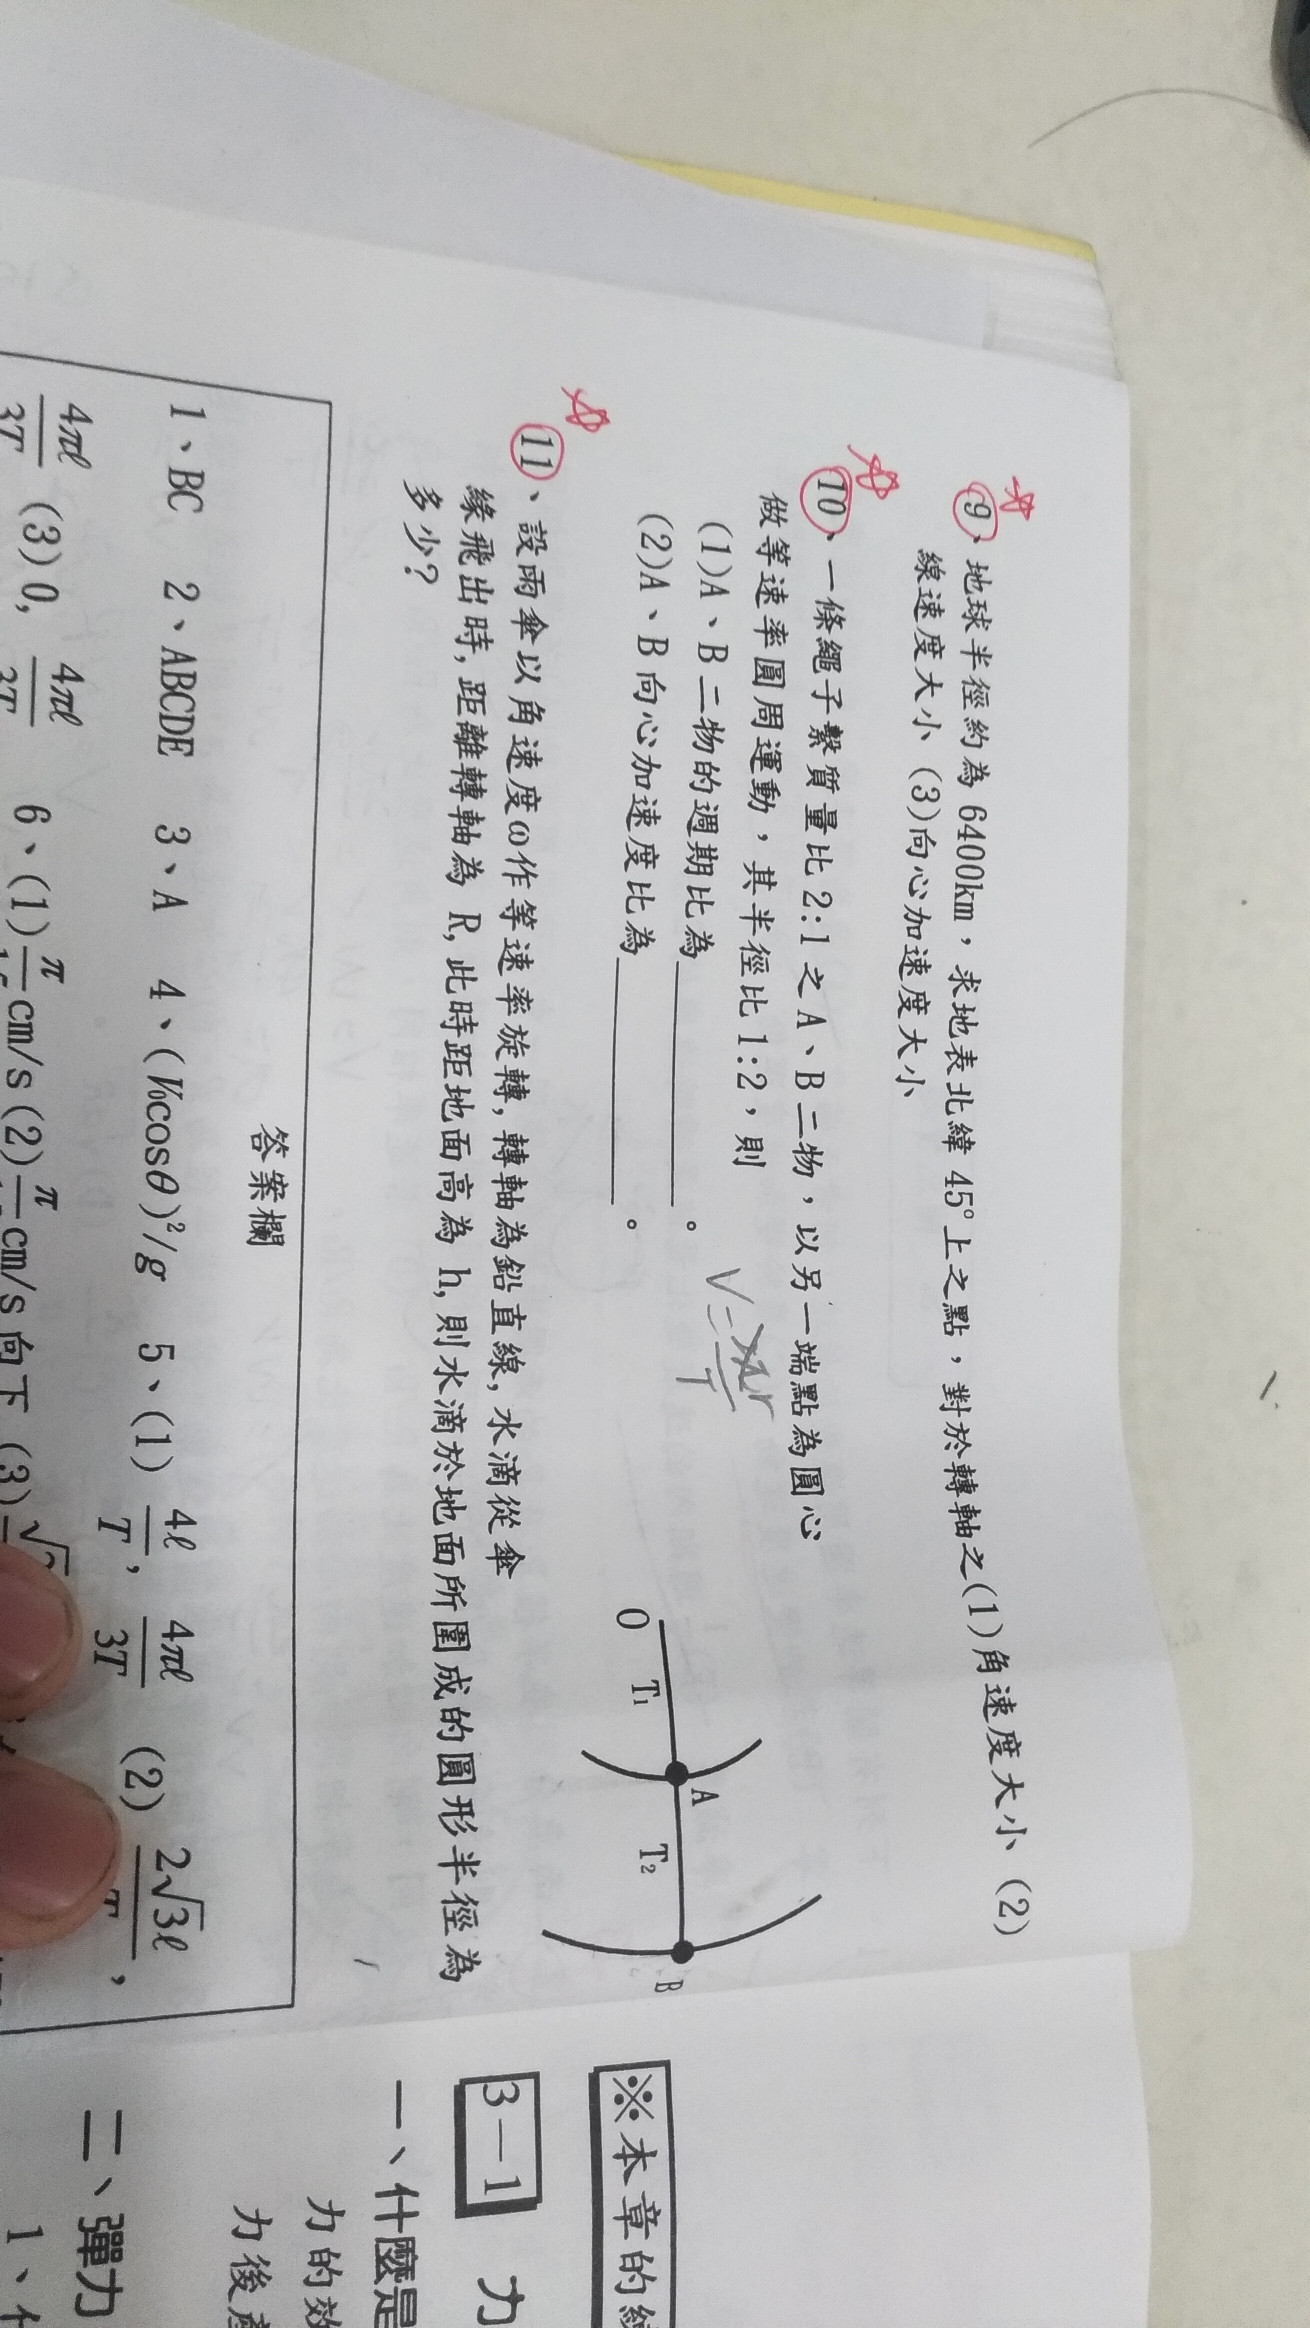 9、地球半徑約為 6400km，求地表北緯 45°上之點，對於轉軸之(1)角速度大小 (2)
線速度大小 (3)向心加速度大小
10、一條繩子繫質量比 2:1 之 A、B 二物，以另一端點為圓心
做等速率圓周運動，其半徑比 1:2，則
(1)A、B 二物的週期比為＿＿＿＿＿。
(2)A、B 向心加速度比為＿＿＿＿＿。
O T₁ A T₂ B
11、設雨傘以角速度ω作等速率旋轉,轉軸為鉛直線,水滴從傘
緣飛出時,距離轉軸為 R,此時距地面高為 h,則水滴於地面所圍成的圓形半徑為
多少?
答案欄
1、BC 2、ABCDE 3、A 4、(V₀cosθ)²/g 5、(1) 4ℓ/T, 4πℓ/3T (2) 2√3ℓ/T,
4πℓ/3T (3)0, 4πℓ/3T 6、(1) π/15 cm/s (2) π/15 cm/s 向下 (3)
※本章的
3—1 力
一、什麼是
力的效
力後產
二、彈力
1、